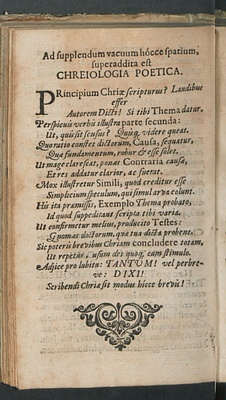 Ad supplendum vacuum hócce spatium,
superaddita est
CHREIOLOGIA POETICA.
PRincipium Chriæ scripturus? Laudibus
effer
Autorem Dicti! Si tibi Thema datur.
Perspicuis verbis illustra parte secunda:
Ut, quis sit sensus? Quisq; videre queat.
Quo ratio constet dictorum, Causa, sequatur,
Qua fundamentum, robur & esse solet.
Ut mage clarescat, ponas Contraria causæ,
Et res addatur clarior, ac fuerat.
Mox illustretur Simili, quod creditur esse
Simplicium speculum, qui simul arva colunt.
His ita præmissis, Exemplo Themα probato,
Id quod suppeditant scripta tibi varia.
Ut confirmetur melius, producito Testes:
Gnomas doctorum, quæ tua dicta probent.
Sic poteris brevibus Chriam concludere totam,
Ut repetas, usum des quoq; cum stimulo.
Adjice pro lubitu: TANTUM! vel perbre-
ve: DIXI!
Scribendi Chria sit modus hicce brevis!